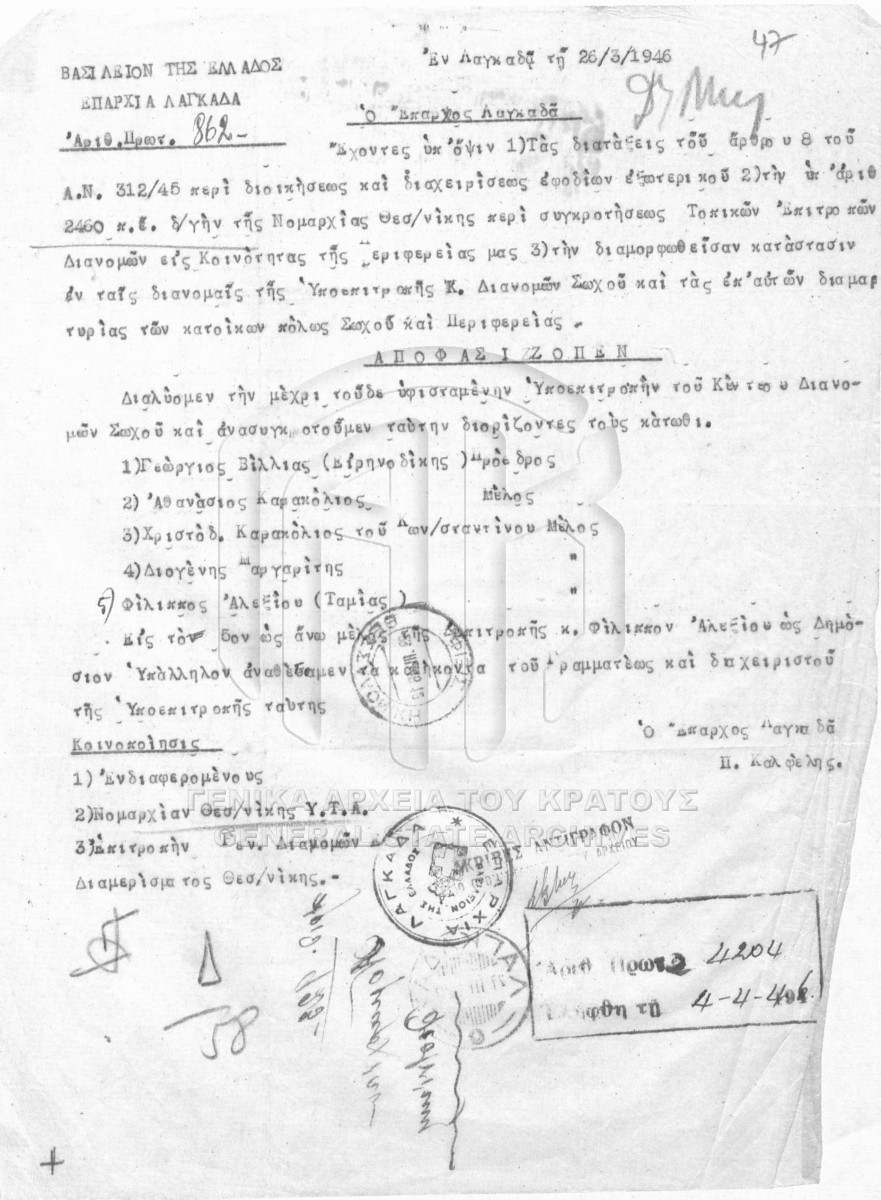 47
ΒΑΣΙΛΕΙΟΝ ΤΗΣ ΕΛΛΑΔΟΣ
Ἐν Λαγκαδᾷ τῇ 26/3/1946
ΕΠΑΡΧΙΑ ΛΑΓΚΑΔΑ
Ὁ Ἔπαρχος Λαγκαδᾶ
Ἀριθ.Πρωτ. 862-
Ἔχοντες ὑπ'ὄψιν 1)Τὰς διατάξεις τοῦ ἄρθρου 8 τοῦ
Α.Ν. 312/45 περὶ διοικήσεως καὶ διαχειρίσεως ἐφοδίων ἐξωτερικοῦ 2)τὴν ὑπ'ἀριθ
2460 π.ἔ. δ/γὴν τῆς Νομαρχίας Θεσ/νίκης περὶ συγκροτήσεως Τοπικῶν Ἐπιτροπῶν
Διανομῶν εἰς Κοινότητας τῆς Περιφερείας μας 3)τὴν διαμορφωθεῖσαν κατάστασιν
ἐν ταῖς διανομαῖς τῆς Ὑποεπιτροπῆς Κ. Διανομῶν Σωχοῦ καὶ τὰς ἐπ'αὐτῶν διαμαρ
τυρίας τῶν κατοίκων πόλως Σωχοῦ καὶ Περιφερείας.
ΑΠΟΦΑΣΙΖΖΟΠΕΝ
Διαλύομεν τὴν μέχρι τοῦδε ὑφισταμένην Ὑποεπιτροπὴν τοῦ Κέντρου Διανο-
μῶν Σωχοῦ καὶ ἀνασυγκροτοῦμεν ταύτην διορίζοντες τοὺς κάτωθι.
1)Γεώργιος Βίλλιας (Εἰρηνοδίκης )Πρόεδρος
2) Ἀθανάσιος Καρακόλιος Μέλος
3)Χριστόδ. Καρακόλιος τοῦ Κων/σταντίνου Μέλος
4)Διογένης Μαργαρίτης "
5) Φίλιππος Ἀλεξίου (Ταμίας ) "
Εἰς τὸν 5ον ὡς ἄνω μέλος τῆς Ἐπιτροπῆς κ. Φίλιππον Ἀλεξίου ὡς Δημό-
σιον Ὑπάλληλον ἀναθέσαμεν τὰ καθήκοντα τοῦ Γραμματέως καὶ διαχειριστοῦ
τῆς Ὑποεπιτροπῆς ταύτης
Ὁ Ἔπαρχος Λαγκαδᾶ
Κοινοποίησις
Π. Καλφέλης.
1) Ἐνδιαφερομένους
2)Νομαρχίαν Θεσ/νίκης Υ.Τ.Α.
3)Ἐπιτροπὴν Γεν. Διαμομῶν
Διαμερίσματος Θεσ/νίκης.-
ΓΕΝΙΚΑ ΑΡΧΕΙΑ ΤΟΥ ΚΡΑΤΟΥΣ
GENERAL STATE ARCHIVES
ΑΚΡΙΒΕΣ ΑΝΤΙΓΡΑΦΟΝ
ΕΠΑΡΧΙΑ ΛΑΓΚΑΔΑ
ΒΑΣΙΛΕΙΟΝ ΤΗΣ ΕΛΛΑΔΟΣ
Ἀριθ. Πρωτ. 4204
Ἐλήφθη τῇ 4-4-46
Δ
58